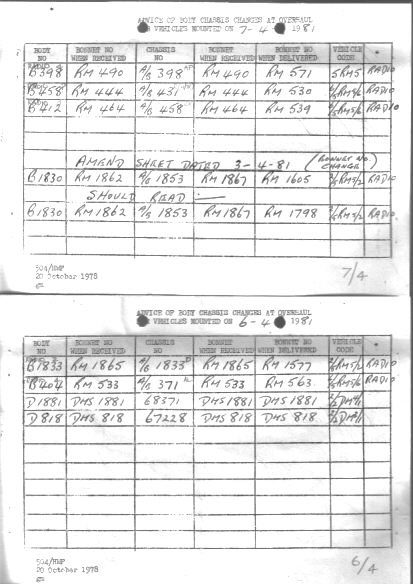 ADVICE OF BODY CHASSIS CHANGES AT OVERHAUL
VEHICLES MOUNTED ON 7-4 1981
BODY NO BONNET NO WHEN RECEIVED CHASSIS NO BONNET WHEN RECEIVED BONNET NO WHEN DELIVERED VEHICLE CODE
B398 RM 490 A/S 398 RM 490 RM 571 5RM5 RADIO
B458 RM 444 A/S 431 RM 444 RM 530 RADIO
B412 RM 464 A/S 458 RM 464 RM 539 RADIO
AMEND SHEET DATED 3-4-81 (BONNET NO. CHANGE)
B1830 RM 1862 A/S 1853 RM 1867 RM 1605 RADIO
SHOULD READ :—
B1830 RM 1862 A/S 1853 RM 1867 RM 1798 RADIO
504/HMP
20 October 1978
7/4
ADVICE OF BODY CHASSIS CHANGES AT OVERHAUL
VEHICLES MOUNTED ON 6-4 1981
BODY NO BONNET NO WHEN RECEIVED CHASSIS NO BONNET WHEN RECEIVED BONNET NO WHEN DELIVERED VEHICLE CODE
B1833 RM 1865 A/S 1833 RM 1865 RM 1577 RADIO
B404 RM 533 A/S 371 RM 533 RM 563 RADIO
D1881 DMS 1881 68371 DMS 1881 DMS 1881
D818 DMS 818 67228 DMS 818 DMS 818
504/HMP
20 October 1978
6/4